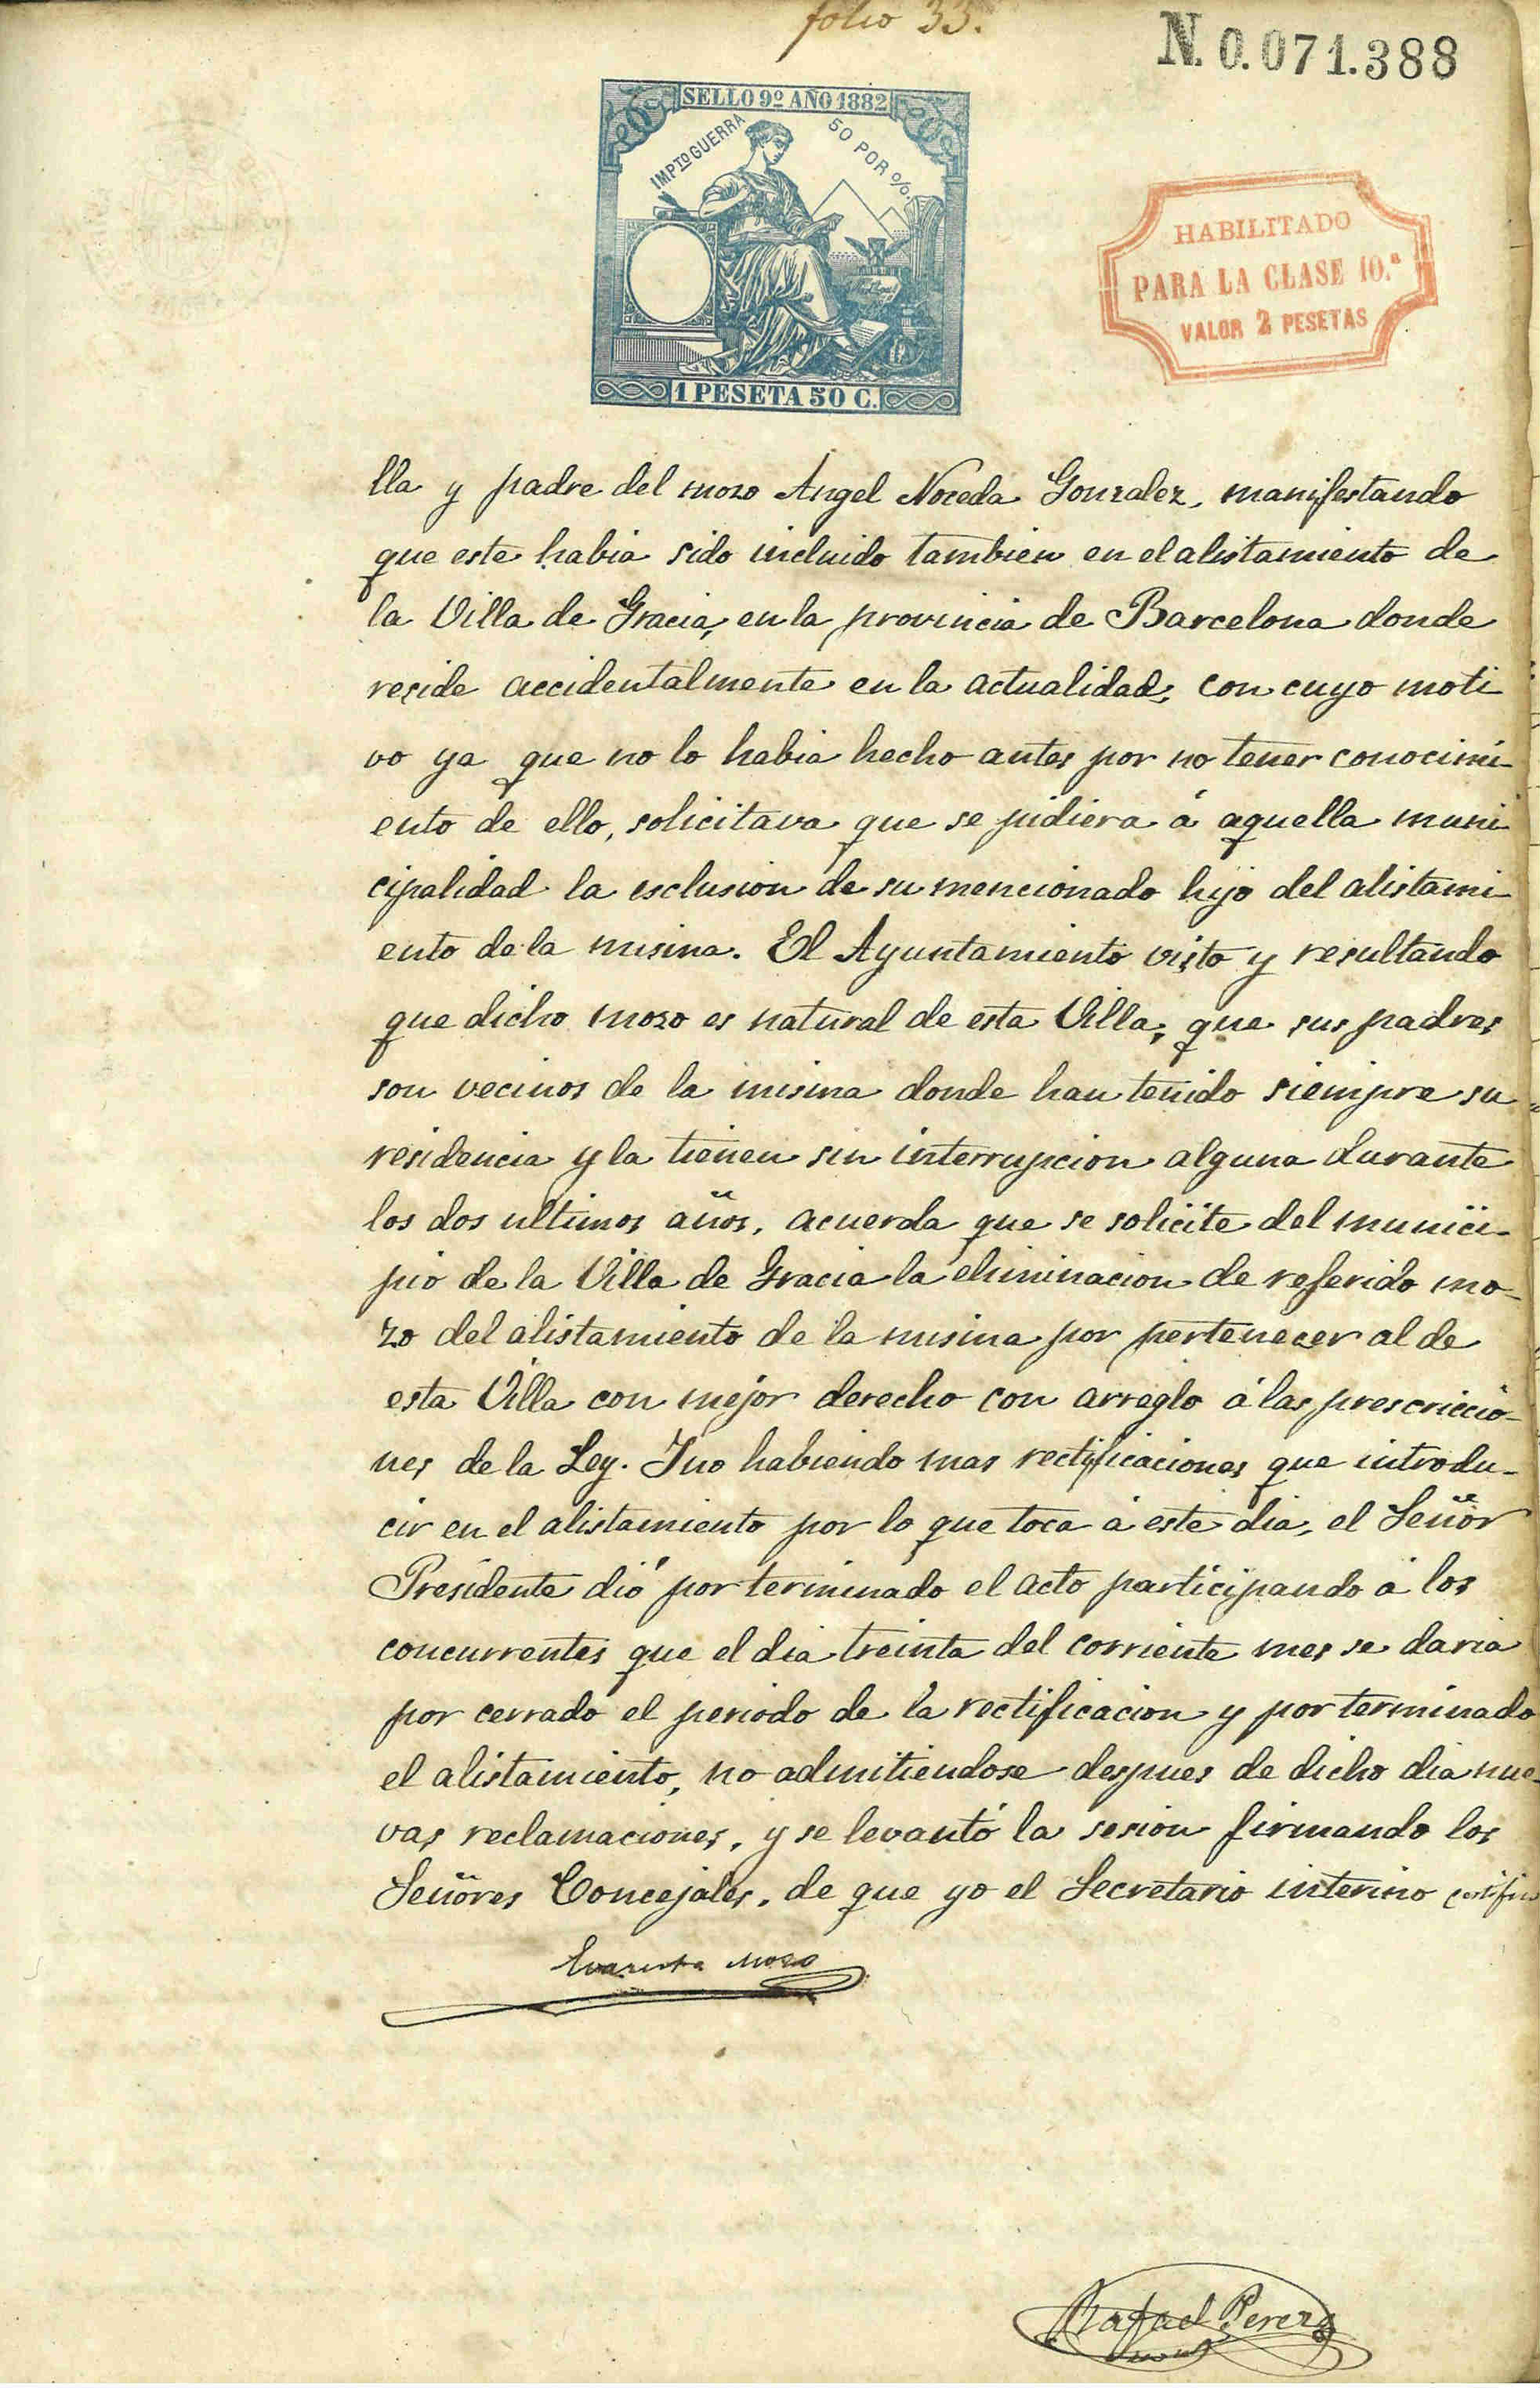 folio 33.
N. 0.071.388
SELLO 9º AÑO 1882
IMPTO GUERRA 50 POR %
HABILITADO
PARA LA CLASE 10.ª
VALOR 2 PESETAS
1 PESETA 50 C.
lla y padre del mozo Angel Noceda Gonzalez, manifestando
que este habia sido incluido tambien en el alistamiento de
la Villa de Gracia, en la provincia de Barcelona donde
reside accidentalmente en la actualidad, con cuyo moti-
vo ya que no lo habia hecho antes por no tener conocimi-
ento de ello, solicitava que se pidiera á aquella muni-
cipalidad la esclusion de su mencionado hijo del alistami-
ento de la misma. El Ayuntamiento visto y resultando
que dicho mozo es natural de esta Villa, que sus padres
son vecinos de la misma donde han tenido siempre su
residencia y la tienen sin interrupcion alguna durante
los dos ultimos años, acuerda que se solicite del munici-
pio de la Villa de Gracia la eliminacion de referido mo-
zo del alistamiento de la misma por pertenecer al de
esta Villa con mejor derecho con arreglo á las prescriccio-
nes de la Ley. Y no habiendo mas rectificaciones que introdu-
cir en el alistamiento por lo que toca á este dia, el Señor
Presidente dió por terminado el acto participando á los
concurrentes que el dia treinta del corriente mes se daria
por cerrado el periodo de la rectificacion y por terminado
el alistamiento, no admitiendose despues de dicho dia nue-
vas reclamaciones, y se levantó la sesion firmando los
Señores Concejales, de que yo el Secretario interino certifico
Evaristo Mozo
Rafael Perez